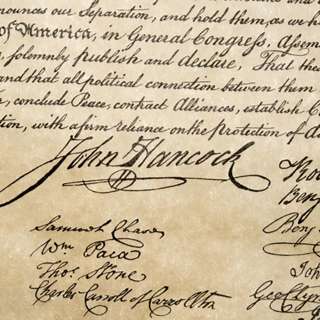 nounces our Separation, and hold them, as we h
of America, in General Congress, Assem
solemnly publish and declare, That the
and that all political connection between them
conclude Peace, contract Alliances, establish C
tion, with a firm reliance on the protection of
John Hancock
Samuel Chase
Wm Paca
Thos. Stone
Charles Carroll of Carrollton
Benj
Geo Clym